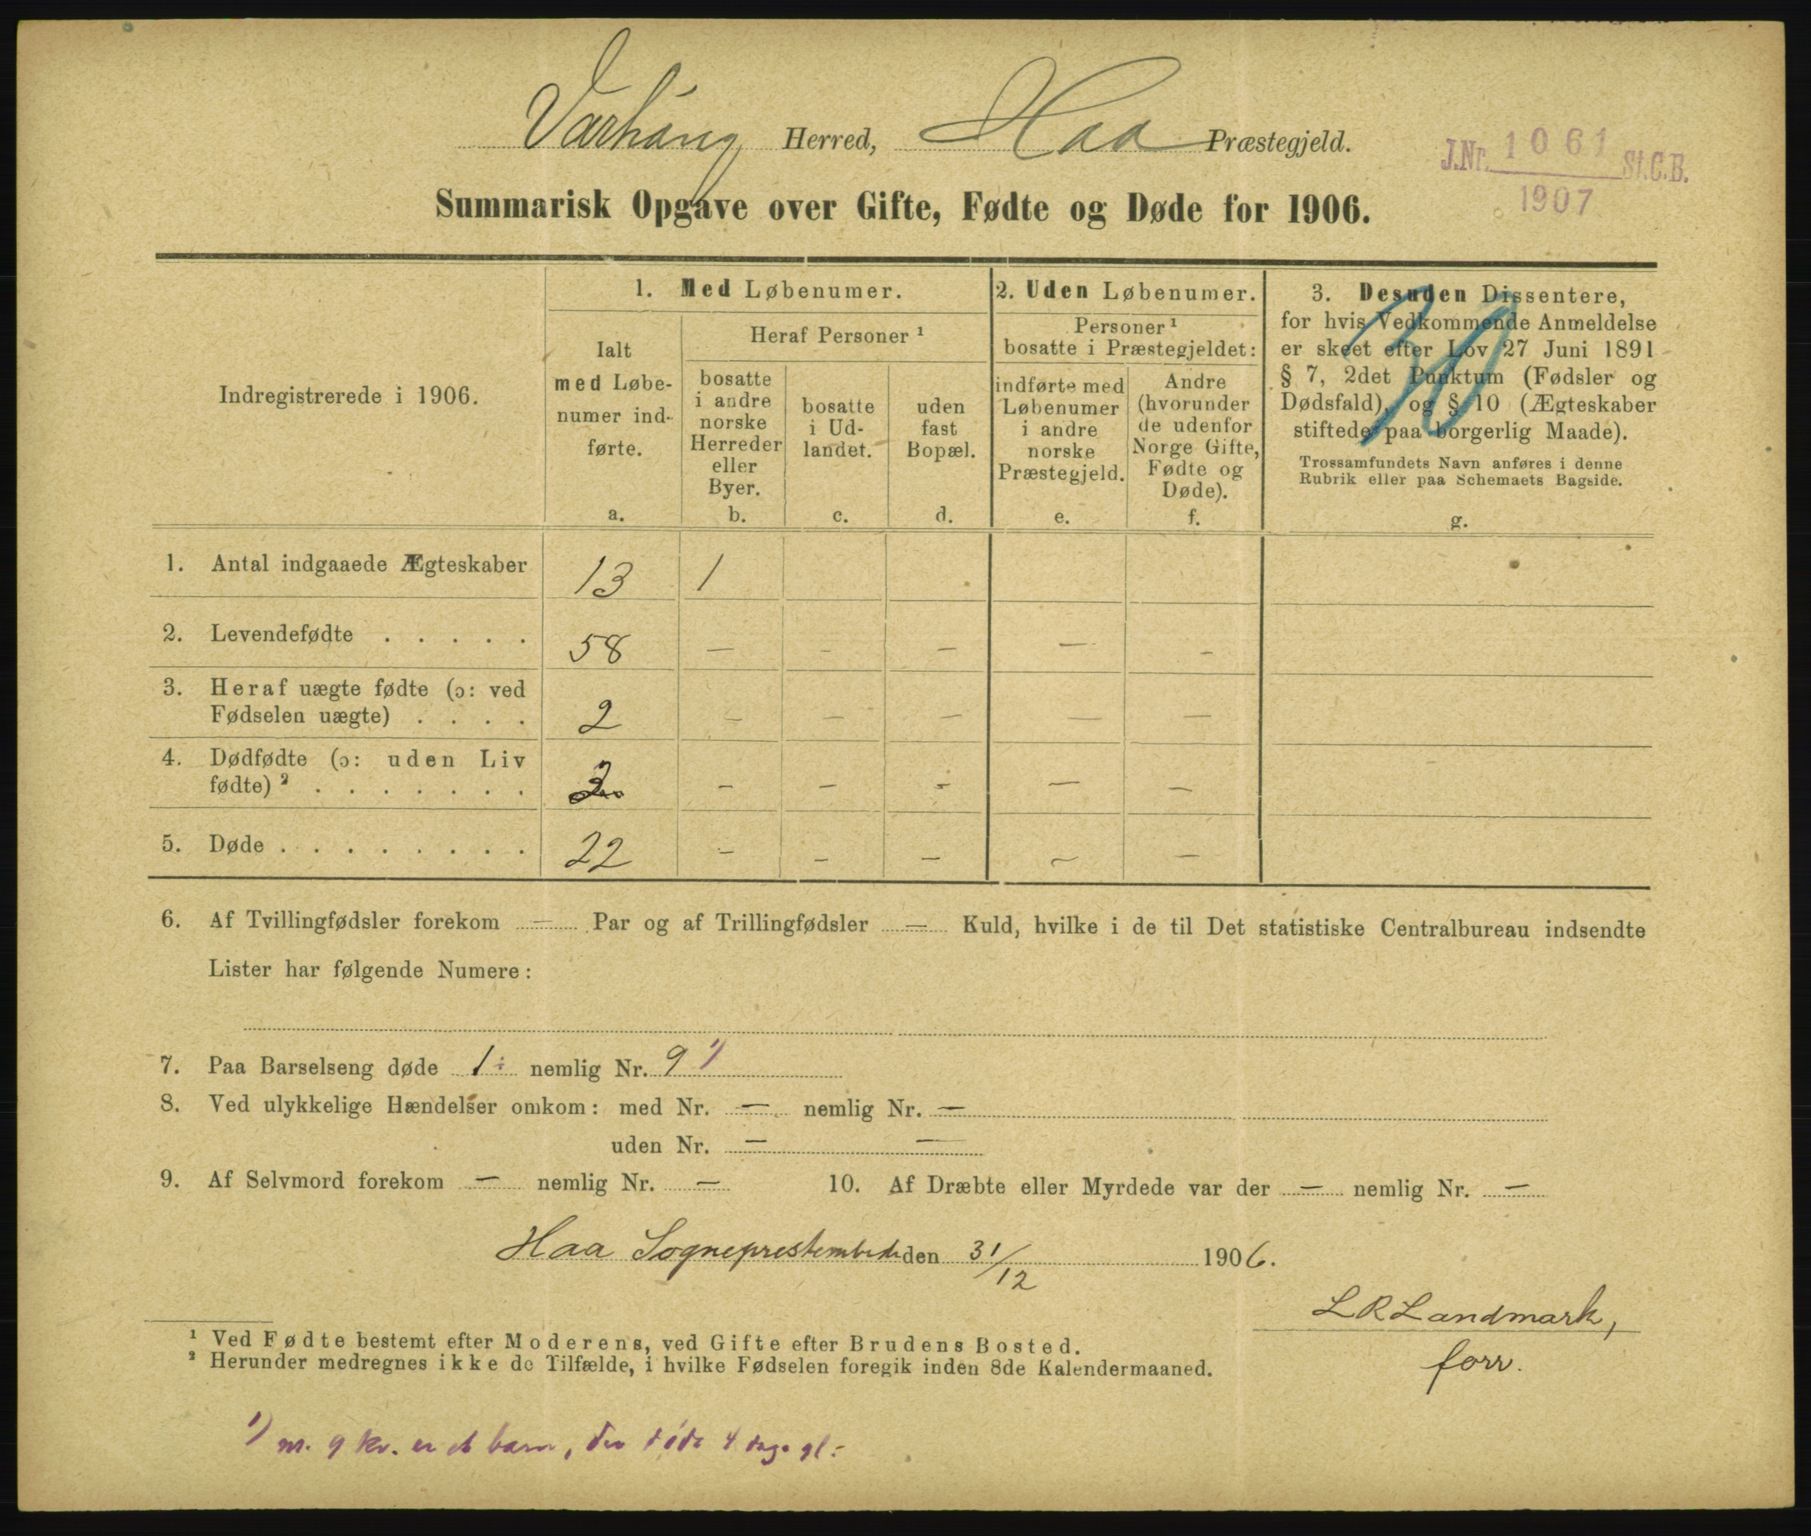 Varhaug Herred, Haa Præstegjeld.
J.Nr. 1061 St.C.B.
1907
Summarisk Opgave over Gifte, Fødte og Døde for 1906.
Indregistrerede i 1906.
1. Med Løbenumer.
Ialt med Løbenumer indførte.
a.
Heraf Personer ¹
bosatte i andre norske Herreder eller Byer.
b.
bosatte i Udlandet.
c.
uden fast Bopæl.
d.
2. Uden Løbenumer.
Personer ¹ bosatte i Præstegjeldet:
indførte med Løbenumer i andre norske Præstegjeld.
e.
Andre (hvorunder de udenfor Norge Gifte, Fødte og Døde).
f.
3. Desuden Dissentere,
for hvis Vedkommende Anmeldelse
er skeet efter Lov 27 Juni 1891
§ 7, 2det Punktum (Fødsler og
Dødsfald), og § 10 (Ægteskaber
stiftede paa borgerlig Maade).
Trossamfundets Navn anføres i denne
Rubrik eller paa Schemaets Bagside.
g.
1. Antal indgaaede Ægteskaber 13 1
2. Levendefødte . . . . . 58 — — — — —
3. Heraf uægte fødte (ɔ: ved
Fødselen uægte) . . . . 2 — — — — —
4. Dødfødte (ɔ: uden Liv
fødte) ² . . . . . . . — — — — —
5. Døde . . . . . . . . 22 — — — — —
6. Af Tvillingfødsler forekom — Par og af Trillingfødsler — Kuld, hvilke i de til Det statistiske Centralbureau indsendte
Lister har følgende Numere:
7. Paa Barselseng døde 1 nemlig Nr. 9 ¹)
8. Ved ulykkelige Hændelser omkom: med Nr. — nemlig Nr. —
uden Nr. — —
9. Af Selvmord forekom — nemlig Nr. — 10. Af Dræbte eller Myrdede var der — nemlig Nr. —
Haa Sogneprestembede den 31/12 1906.
L R Landmark,
forr.
¹ Ved Fødte bestemt efter Moderens, ved Gifte efter Brudens Bosted.
² Herunder medregnes ikke de Tilfælde, i hvilke Fødselen foregik inden 8de Kalendermaaned.
¹) nr. 9 kv. er et barn, der døde 4 dage gl.